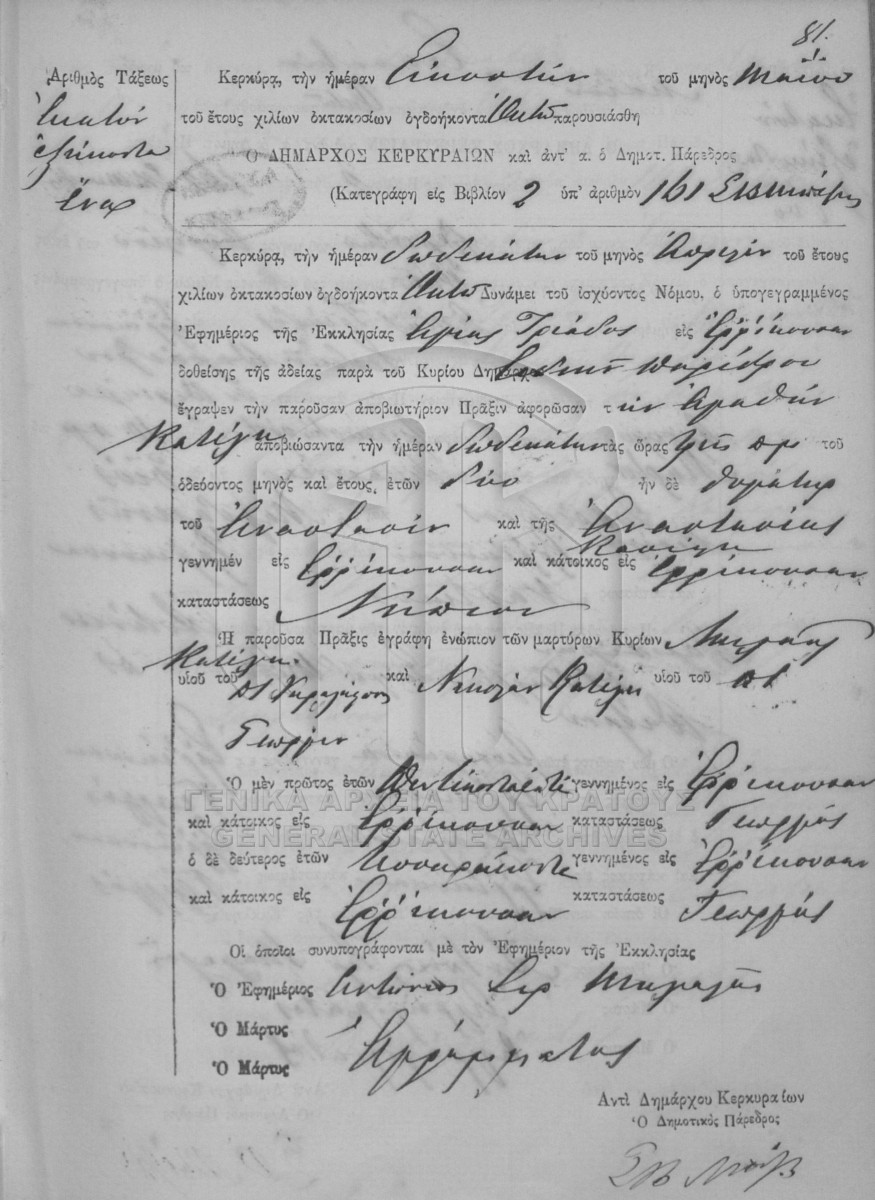 81.
Ἀριθμὸς Τάξεως
Ἑκατόν
ἑξήκοντα
ἕνα
Κερκύρᾳ, τὴν ἡμέραν Εἰκοστήν τοῦ μηνὸς Μαΐου
τοῦ ἔτους χιλίων ὀκτακοσίων ὀγδοήκοντα Ὀκτώ παρουσιάσθη
Ὁ ΔΗΜΑΡΧΟΣ ΚΕΡΚΥΡΑΙΩΝ καὶ ἀντ' α. ὁ Δημοτ. Πάρεδρος
(Κατεγράφη εἰς Βιβλίον 2 ὑπ' ἀριθμὸν 161
Κερκύρᾳ, τὴν ἡμέραν δωδεκάτην τοῦ μηνὸς Ἀπριλίου τοῦ ἔτους
χιλίων ὀκτακοσίων ὀγδοήκοντα Ὀκτώ Δυνάμει τοῦ ἰσχύοντος Νόμου, ὁ ὑπογεγραμμένος
Ἐφημέριος τῆς Ἐκκλησίας Ἁγίας Τριάδος εἰς Ἐρρίκουσαν
δοθείσης τῆς ἀδείας παρὰ τοῦ Κυρίου Δημάρχου εἰδικοῦ παρέδρου
ἔγραψεν τὴν παροῦσαν ἀποβιωτήριον Πρᾶξιν ἀφορῶσαν τ ὴν Ἀγαθήν
Κατέχη ἀποβιώσαντα τὴν ἡμέραν δωδεκάτην τὰς ὥρας τρεῖς πμ τοῦ
ὁδεύοντος μηνὸς καὶ ἔτους, ἐτῶν δύο ἦν δὲ θυγάτηρ
τοῦ Ἀναστασίου καὶ τῆς Ἀναστασίας
Κατέχη
γεννημέν εἰς Ἐρρίκουσαν καὶ κάτοικος εἰς Ἐρρίκουσαν
καταστάσεως Νήπιον
Ἡ παροῦσα Πρᾶξις ἐγράφη ἐνώπιον τῶν μαρτύρων Κυρίων
Κατέχη
υἱοῦ τοῦ καὶ Νικολάου Κατέχη υἱοῦ τοῦ
Γεωργίου
Ὁ μὲν πρῶτος ἐτῶν γεννημένος εἰς Ἐρρίκουσαν
καὶ κάτοικος εἰς Ἐρρίκουσαν καταστάσεως Γεωργός
ὁ δὲ δεύτερος ἐτῶν γεννημένος εἰς Ἐρρίκουσαν
καὶ κάτοικος εἰς Ἐρρίκουσαν καταστάσεως Γεωργός
ΓΕΝΙΚΑ ΑΡΧΕΙΑ ΤΟΥ ΚΡΑΤΟΥΣ
GENERAL STATE ARCHIVES
Οἱ ὁποῖοι συνυπογράφονται μὲ τὸν Ἐφημέριον τῆς Ἐκκλησίας
Ὁ Ἐφημέριος Ἀντώνιος
Ὁ Μάρτυς
Ὁ Μάρτυς Ἀγράμματος
Ἀντὶ Δημάρχου Κερκυραίων
Ὁ Δημοτικὸς Πάρεδρος